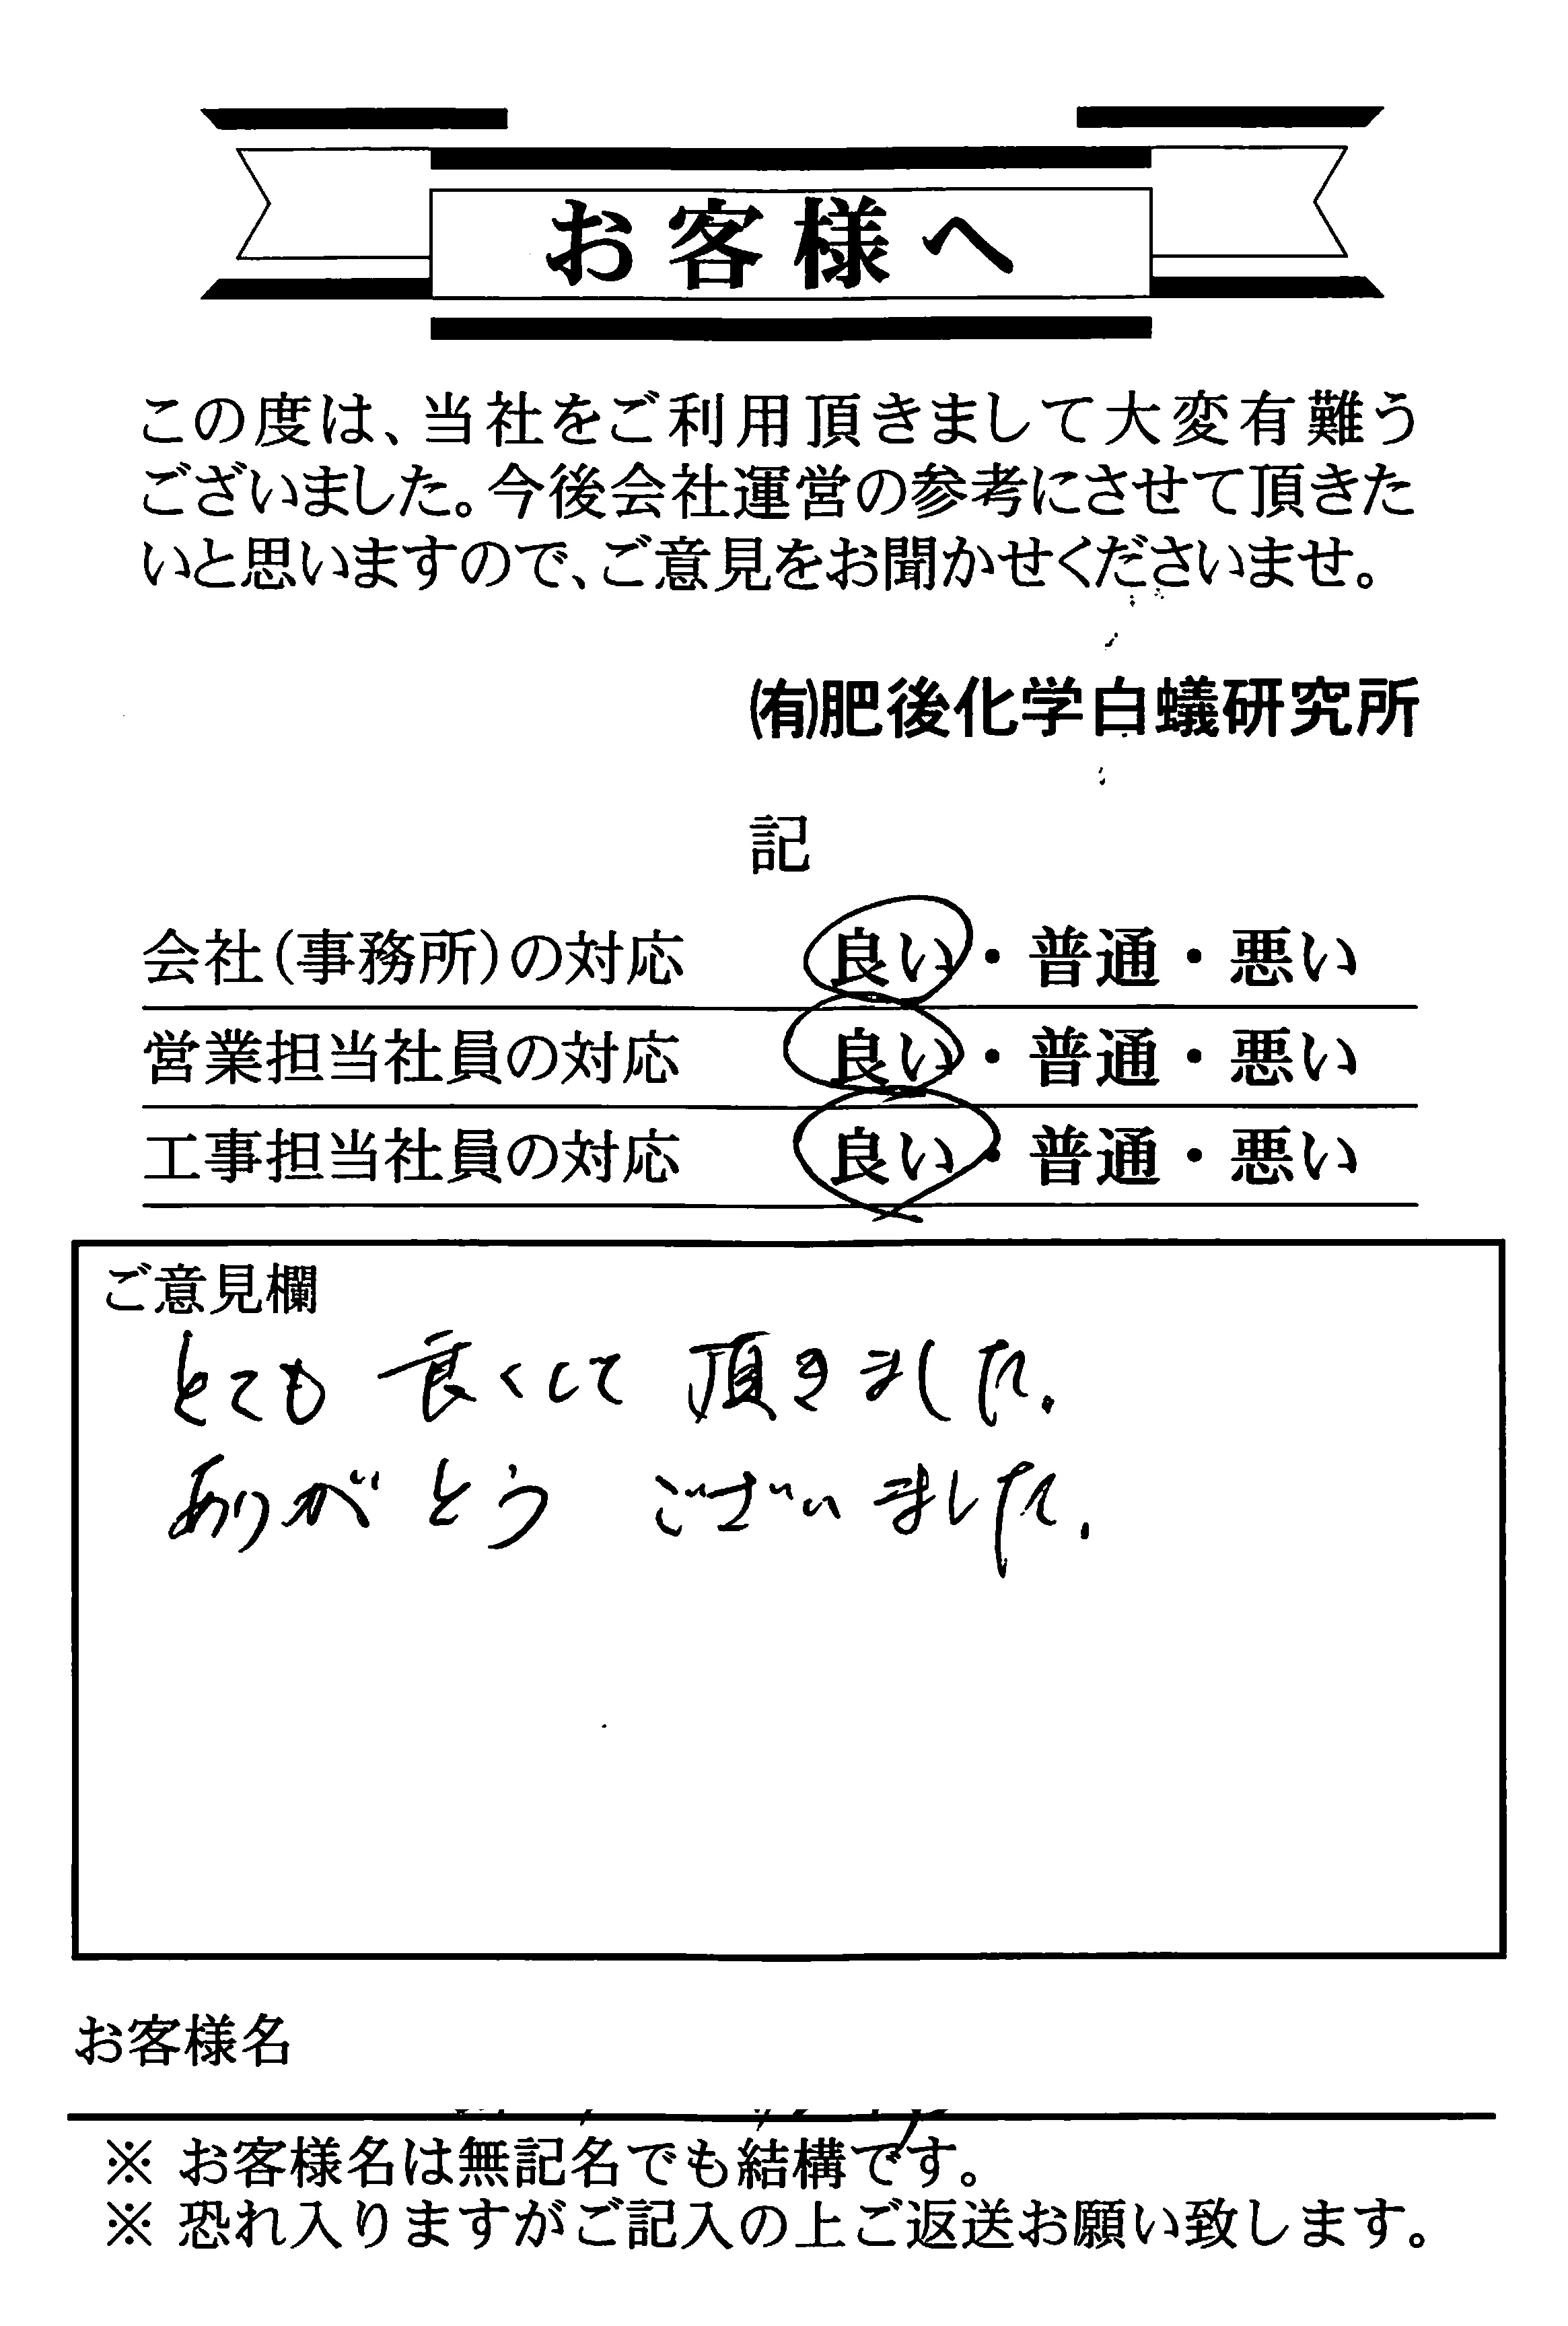 お客様へ
この度は、当社をご利用頂きまして大変有難う
ございました。今後会社運営の参考にさせて頂きた
いと思いますので、ご意見をお聞かせくださいませ。
㈲肥後化学白蟻研究所
記
会社(事務所)の対応 良い・普通・悪い
営業担当社員の対応 良い・普通・悪い
工事担当社員の対応 良い・普通・悪い
ご意見欄
とても良くして頂きました.
ありがとうございました.
お客様名
※ お客様名は無記名でも結構です。
※ 恐れ入りますがご記入の上ご返送お願い致します。